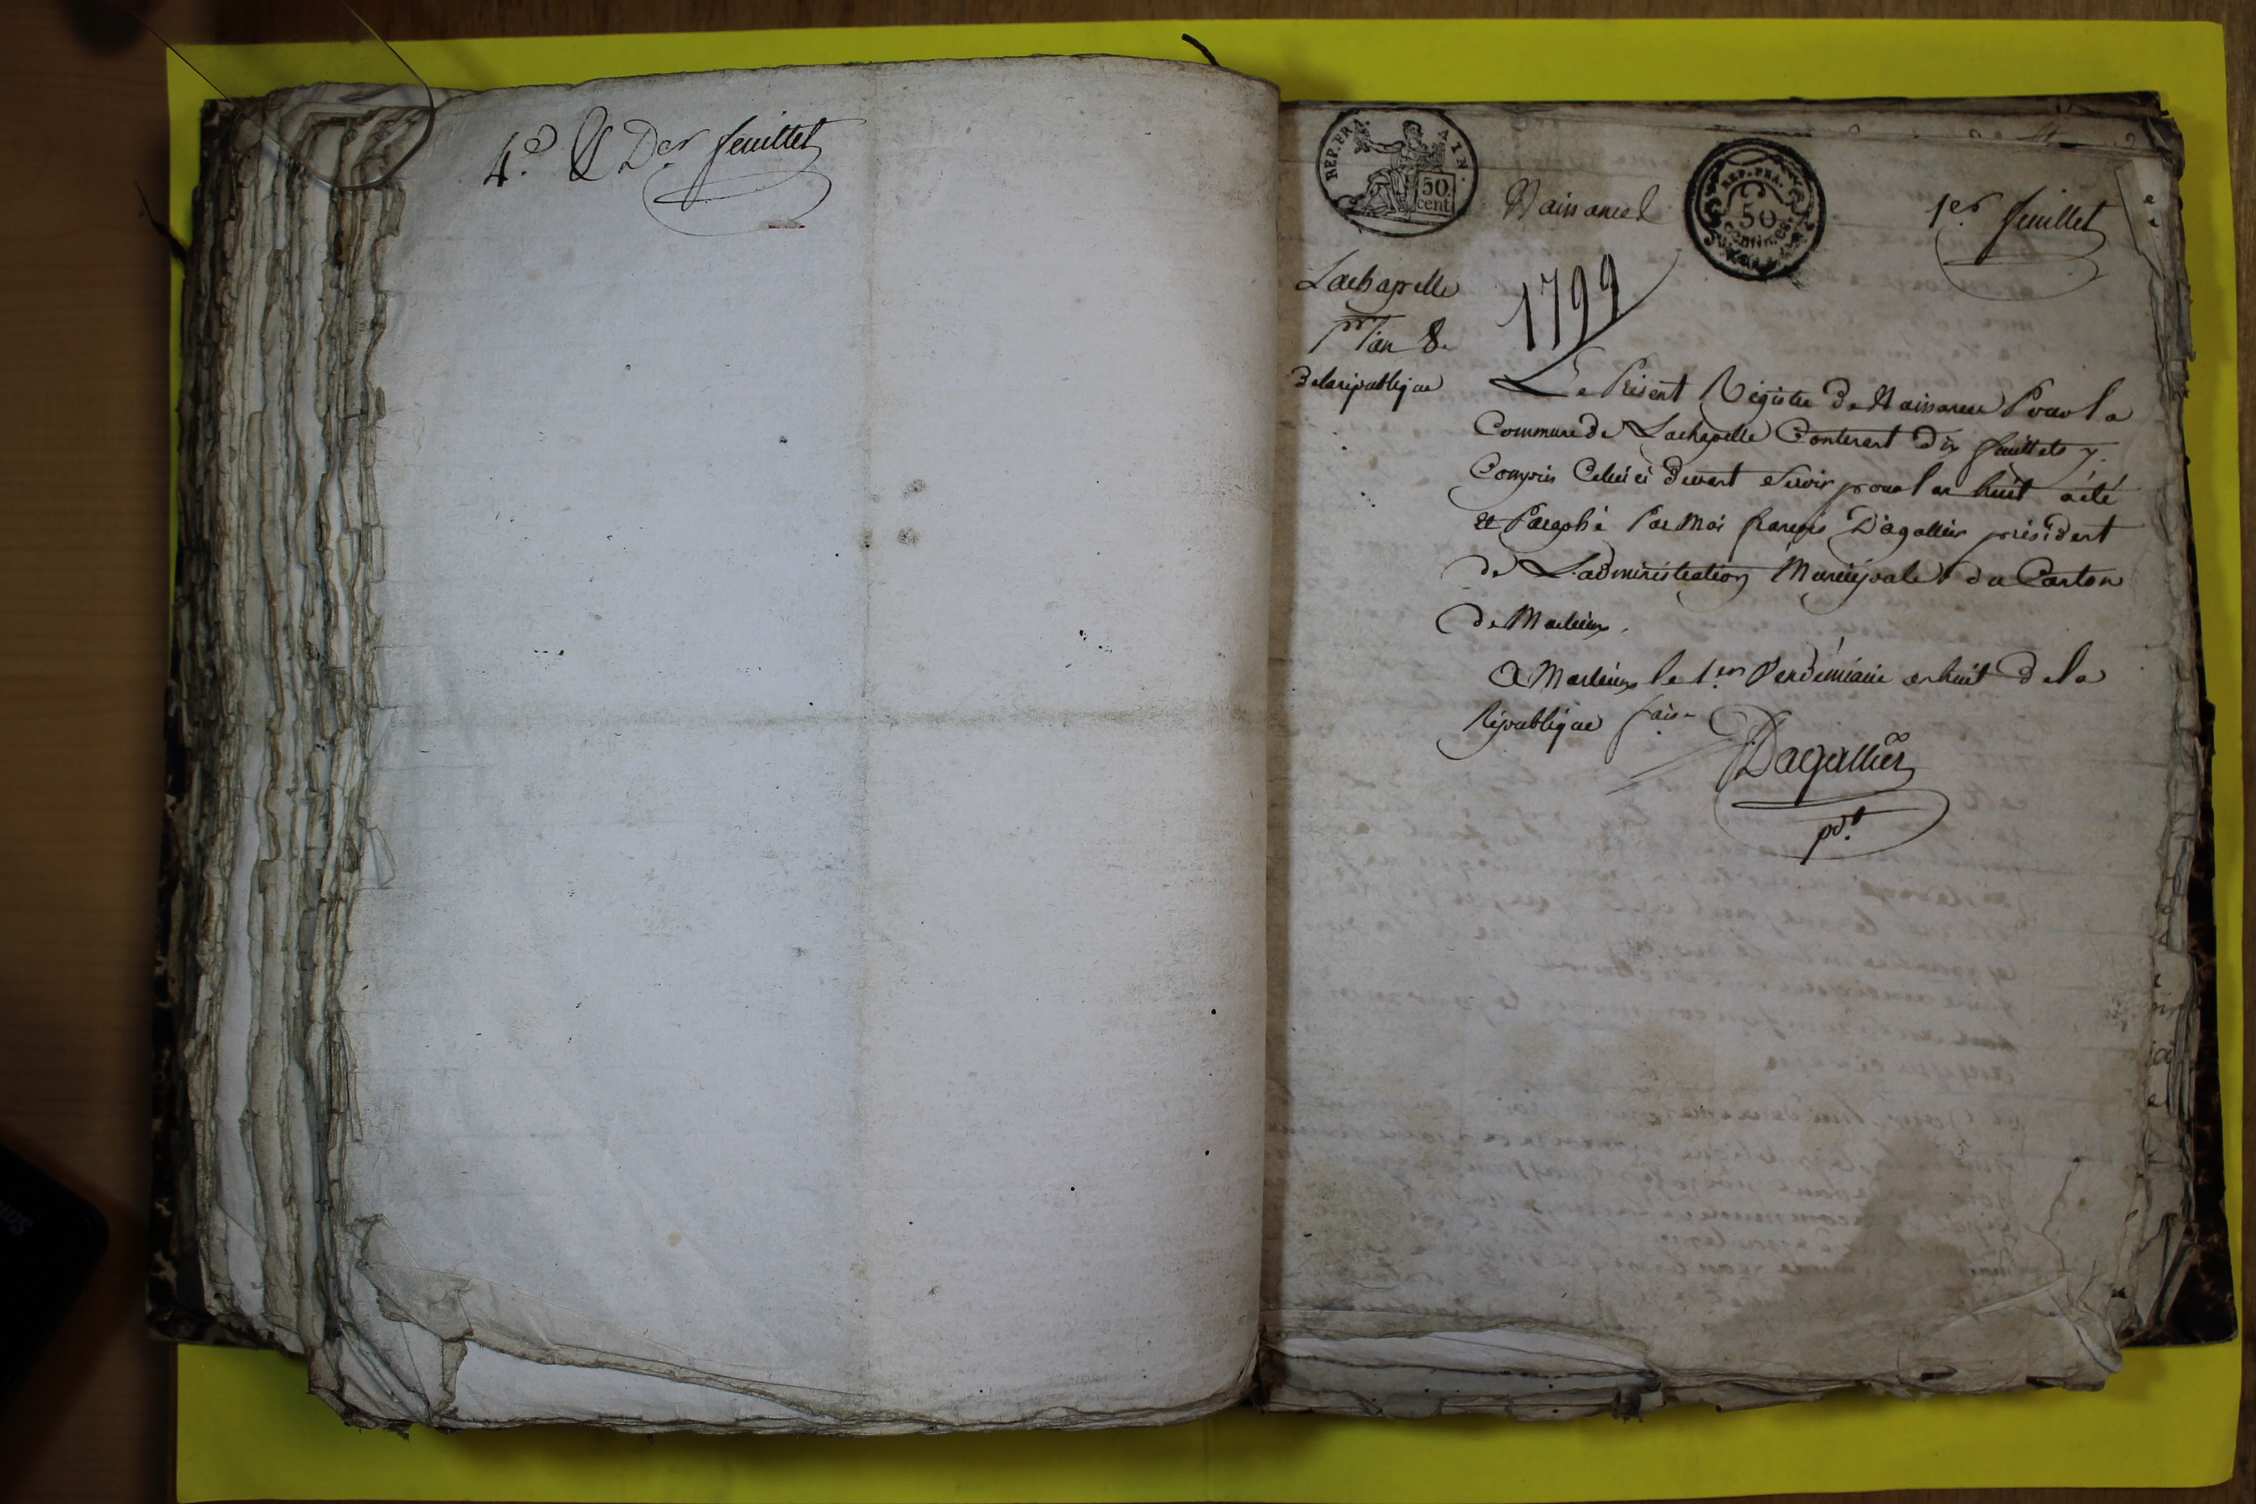 4.e & Der feuillet
REP. FRA. AIN.
50 cent
Naissance
REP. FRA.
50
centimes
1er feuillet
Lachapelle
1799
pr l'an 8.
De la république
Le Présent Régistre De Naissance Pour la
Commune De Lachapelle Contenant Dix feuillets y
Compris Celui ci Devant Servir pour l'an huit a été
et Paraphé Par Moi françois Dagallier président
de L'administration Municipale du Canton
De
a le 1.er Vendémiaire an huit De la
République fais.
Dagallier
pdt